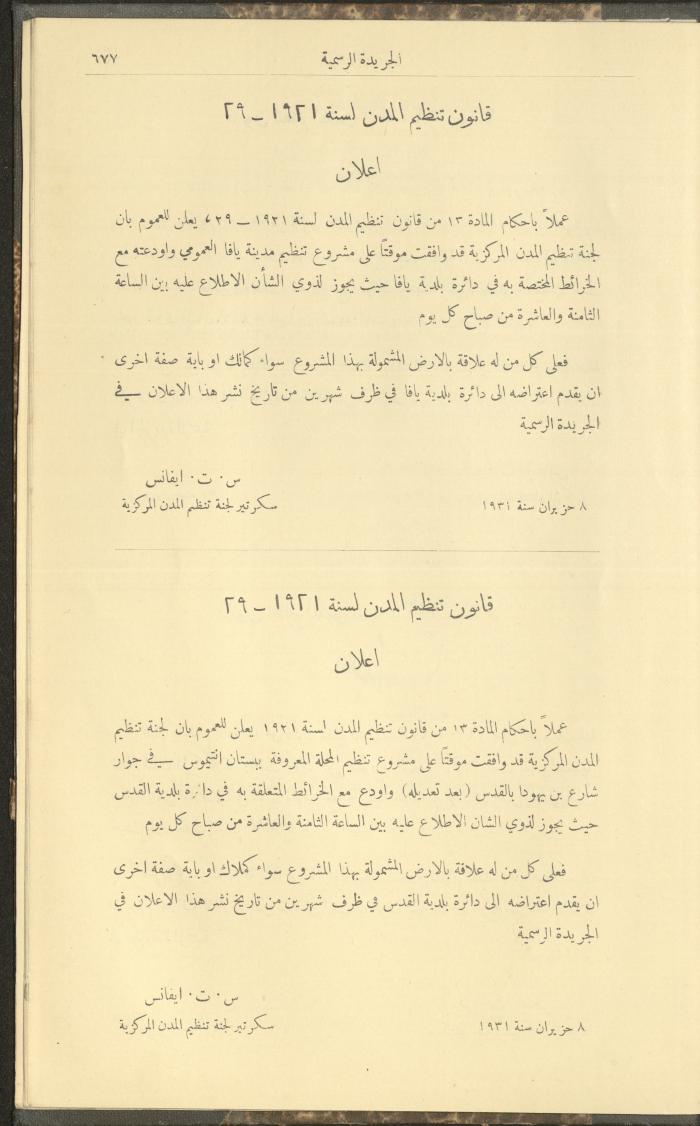 الجريدة الرسمية ٦٧٧
قانون تنظيم المدن لسنة ١٩٢١ – ٢٩
اعلان
عملاً باحكام المادة ١٣ من قانون تنظيم المدن لسنة ١٩٢١ – ٢٩، يعلن للعموم بان
لجنة تنظيم المدن المركزية قد وافقت موقتاً على مشروع تنظيم مدينة يافا العمومي واودعته مع
الخرائط المختصة به في دائرة بلدية يافا حيث يجوز لذوي الشأن الاطلاع عليه بين الساعة
الثامنة والعاشرة من صباح كل يوم
فعلى كل من له علاقة بالارض المشمولة بهذا المشروع سواء كمالك او باية صفة اخرى
ان يقدم اعتراضه الى دائرة بلدية يافا في ظرف شهرين من تاريخ نشر هذا الاعلان في
الجريدة الرسمية
س . ت . ايفانس
٨ حزيران سنة ١٩٣١ سكرتير لجنة تنظيم المدن المركزية
قانون تنظيم المدن لسنة ١٩٢١ – ٢٩
اعلان
عملاً باحكام المادة ١٣ من قانون تنظيم المدن لسنة ١٩٢١ يعلن للعموم بان لجنة تنظيم
المدن المركزية قد وافقت موقتاً على مشروع تنظيم المحلة المعروفة ببستان انتيموس في جوار
شارع بن يهودا بالقدس (بعد تعديله) واودع مع الخرائط المتعلقة به في دائرة بلدية القدس
حيث يجوز لذوي الشان الاطلاع عليه بين الساعة الثامنة والعاشرة من صباح كل يوم
فعلى كل من له علاقة بالارض المشمولة بهذا المشروع سواء كملاك او باية صفة اخرى
ان يقدم اعتراضه الى دائرة بلدية القدس في ظرف شهرين من تاريخ نشر هذا الاعلان في
الجريدة الرسمية
س . ت . ايفانس
٨ حزيران سنة ١٩٣١ سكرتير لجنة تنظيم المدن المركزية